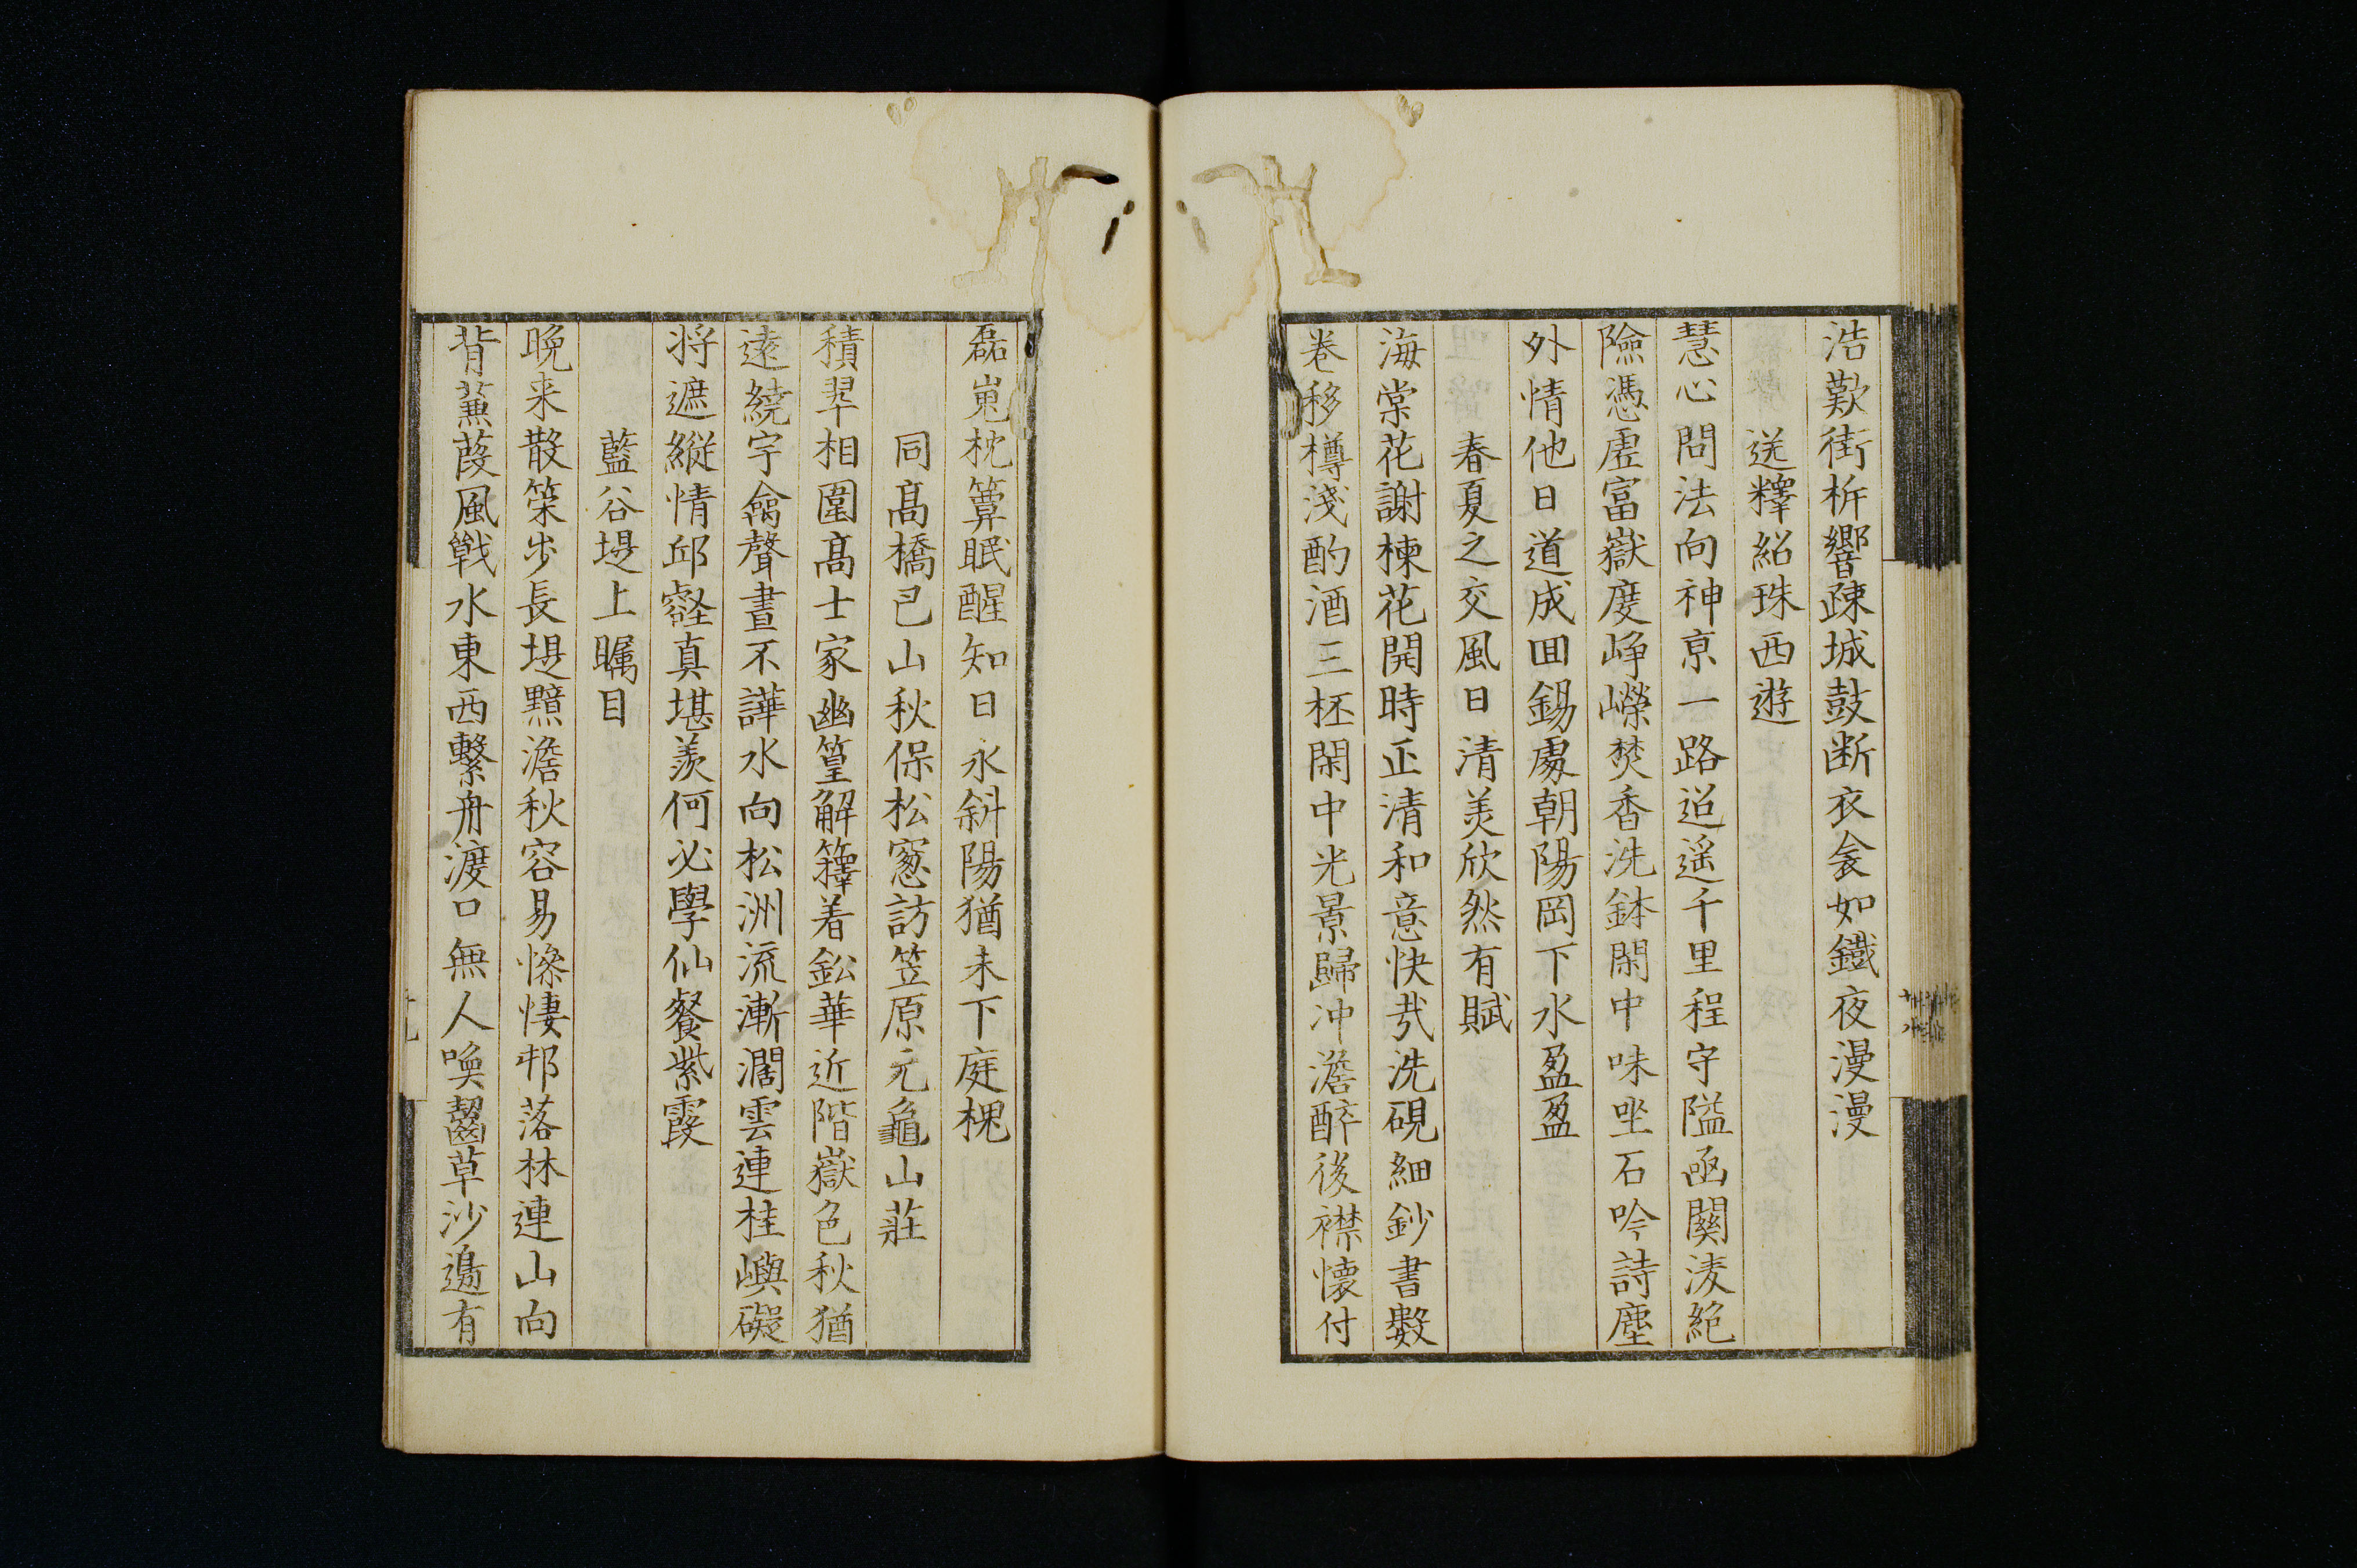 浩歎街柝響疎城鼓断衣衾如鐵夜漫漫
送釋紹珠西遊
慧心問法向神京一路迢遥千里程守隘凾關淩絶
險憑虚富嶽度崢嶸焚香洗鉢閑中味坐石吟詩塵
外情他日道成囬錫處朝陽岡下水盈盈
春夏之交風日清美欣然有賦
海棠花謝楝花開時正清和意快哉洗硯細鈔書數
卷移樽淺酌酒三杯閑中光景歸冲澹醉後襟懐付
磊嵬枕簟眠醒知日永斜陽猶未下庭槐
同髙橋巳山秋保松窻訪笠原元龜山莊
積翠相圍髙士家幽篁解籜着鈆華近階嶽色秋猶
遠繞宇禽聲晝不譁水向松洲流漸濶雲連桂嶼礙
将遮縦情邱壑真堪羨何必學仙餐紫霞
藍谷堤上矚目
晩来散策歩長堤黯澹秋容易慘悽邨落林連山向
背蒹葭風戰水東西繫舟渡口無人喚齧草沙邉有